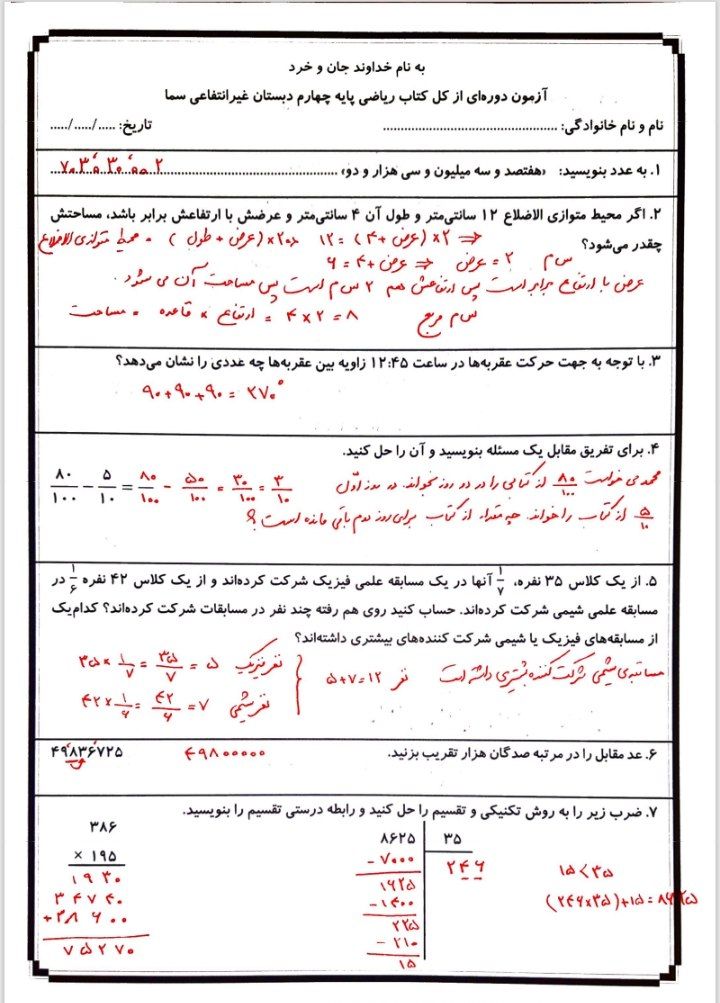 به نام خداوند جان و خرد
آزمون دوره‌ای از کل کتاب ریاضی پایه چهارم دبستان غیرانتفاعی سما
نام و نام خانوادگی: ........................................ تاریخ: ...../...../.....
۱. به عدد بنویسید: «هفتصد و سه میلیون و سی هزار و دو» ........ ۷۰۳٬۰۳۰٬۰۰۲
۲. اگر محیط متوازی الاضلاع ۱۲ سانتی‌متر و طول آن ۴ سانتی‌متر و عرضش با ارتفاعش برابر باشد، مساحتش
چقدر می‌شود؟
محیط متوازی الاضلاع = (عرض + طول) ×۲ => ۱۲ = (عرض + ۴) ×۲ =>
۶ = ۴+ عرض => عرض = ۲ س م
عرض با ارتفاع برابر است پس ارتفاعش هم ۲ س م است پس مساحت آن می شود.
مساحت = قاعده × ارتفاع = ۴ × ۲ = ۸ س م مربع
۳. با توجه به جهت حرکت عقربه‌ها در ساعت ۱۲:۴۵ زاویه بین عقربه‌ها چه عددی را نشان می‌دهد؟
۹۰ + ۹۰ + ۹۰ = ۲۷۰°
۴. برای تفریق مقابل یک مسئله بنویسید و آن را حل کنید.
۸۰/۱۰۰ − ۵/۱۰ = ۸۰/۱۰۰ − ۵۰/۱۰۰ = ۳۰/۱۰۰ = ۳/۱۰
محمد می خواست ۸۰/۱۰۰ از کتابی را در دو روز بخواند. در روز اوّل
۵/۱۰ از کتاب را خواند. چه مقدار از کتاب برای روز دوم باقی مانده است؟
۵. از یک کلاس ۳۵ نفره، ۱/۷ آنها در یک مسابقه علمی فیزیک شرکت کرده‌اند و از یک کلاس ۴۲ نفره ۱/۶ در
مسابقه علمی شیمی شرکت کرده‌اند. حساب کنید روی هم رفته چند نفر در مسابقات شرکت کرده‌اند؟ کدام‌یک
از مسابقه‌های فیزیک یا شیمی شرکت کننده‌های بیشتری داشته‌اند؟
۳۵ × ۱/۷ = ۳۵/۷ = ۵ نفر فیزیک
۴۲ × ۱/۶ = ۴۲/۶ = ۷ نفر شیمی
۵+۷=۱۲ نفر
مسابقه‌ی شیمی شرکت کننده بیشتری داشته است
۶. عد مقابل را در مرتبه صدگان هزار تقریب بزنید. ۴۹۸۳۶۷۲۵
۴۹۸۰۰۰۰۰
۷. ضرب زیر را به روش تکنیکی و تقسیم را حل کنید و رابطه درستی تقسیم را بنویسید.
۳۸۶
× ۱۹۵
۱۹۳۰
۳۴۷۴۰
+۳۸۶۰۰
۷۵۲۷۰
۸۶۲۵ ۳۵
− ۷۰۰۰ ۲۴۶
۱۶۲۵
−۱۴۰۰
۲۲۵
− ۲۱۰
۱۵
۱۵ < ۳۵
(۲۴۶×۳۵)+۱۵=۸۶۲۵